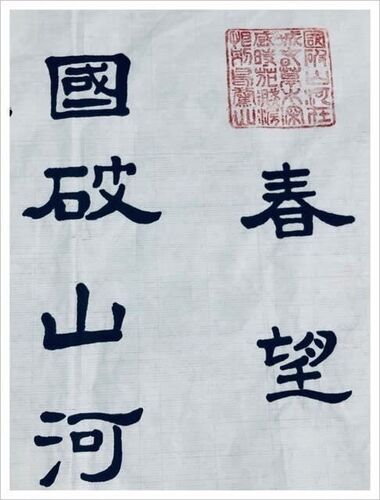 國破山河在
城春草木深
感時花濺淚
恨別鳥驚心
春望
國破山河